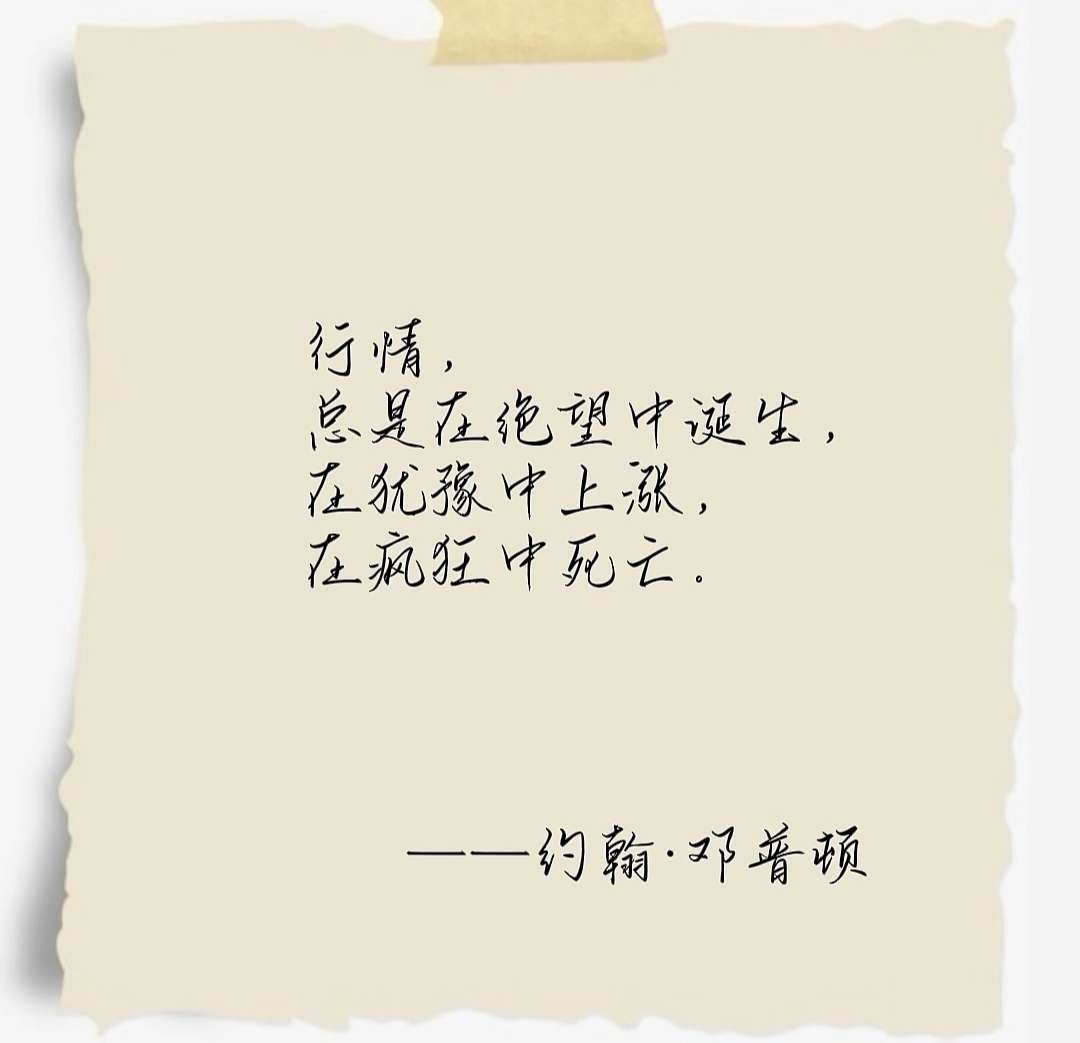 行情，
总是在绝望中诞生，
在犹豫中上涨，
在疯狂中死亡。
——约翰·邓普顿